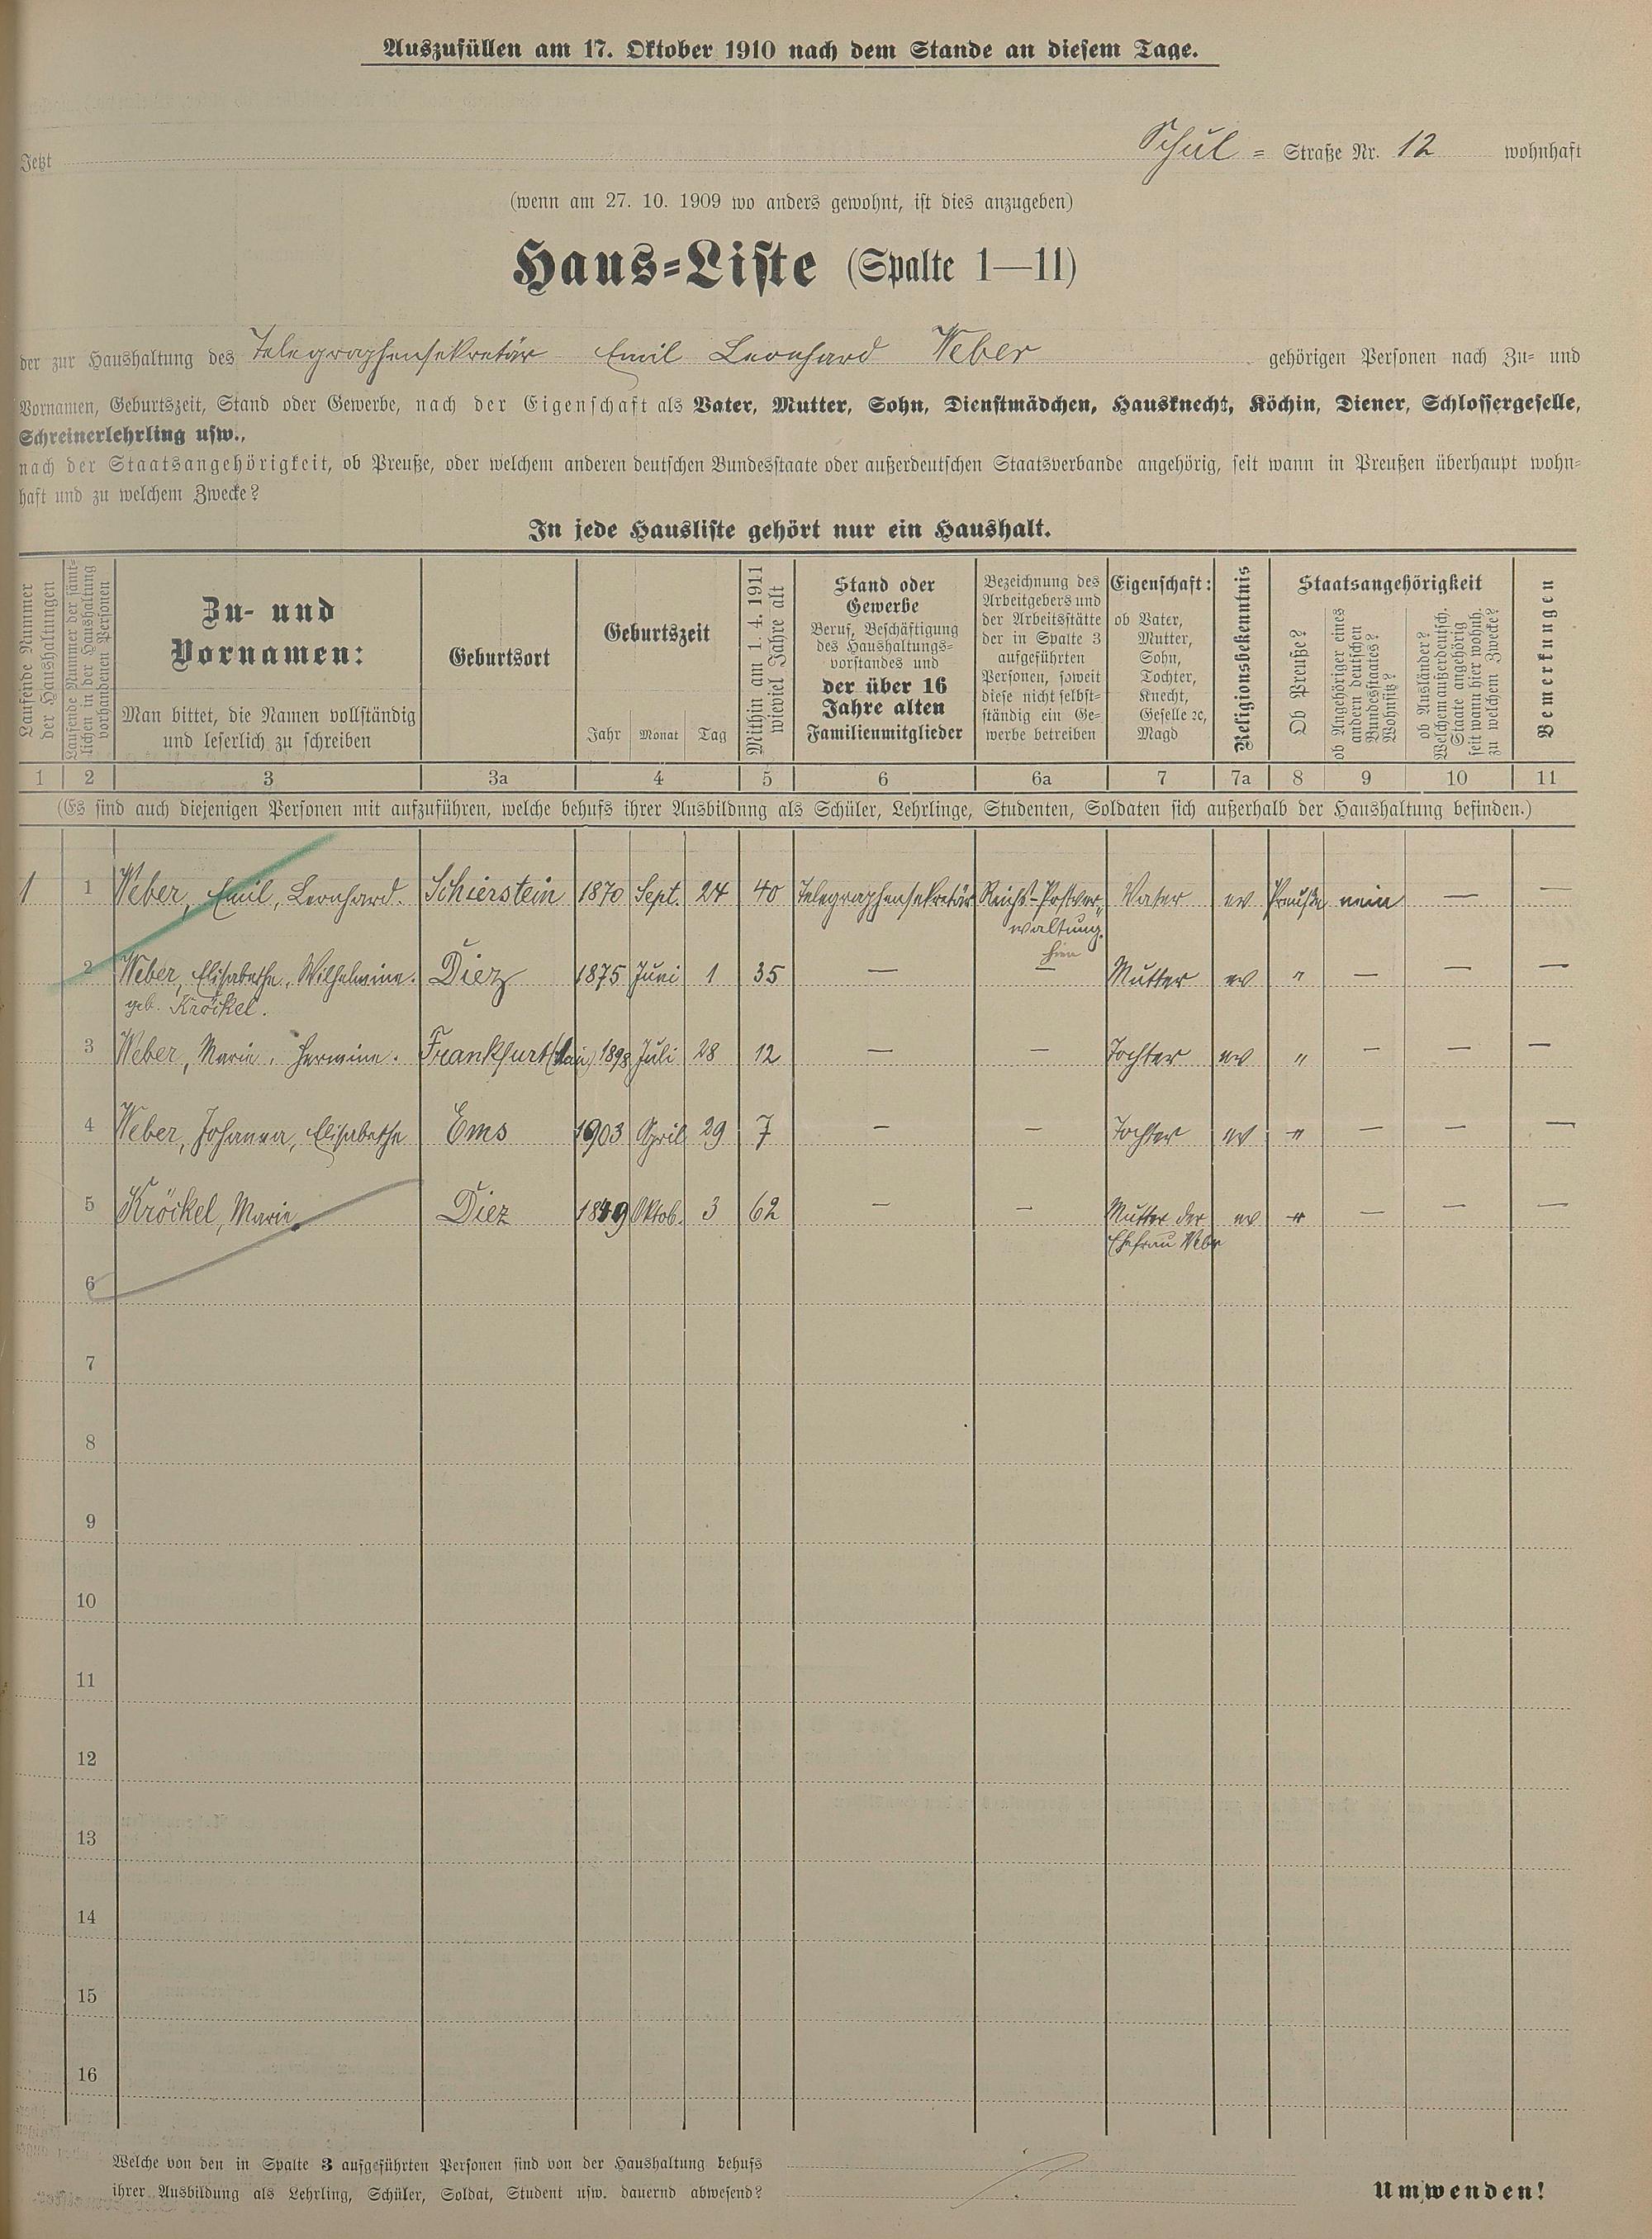 Auszufüllen am 17. Oktober 1910 nach dem Stande an diesem Tage.
Jetzt Schul = Straße Nr. 12 wohnhaft
(wenn am 27. 10. 1909 wo anders gewohnt, ist dies anzugeben)
Haus=Liste (Spalte 1—11)
der zur Haushaltung des Telegraphensekretär Emil Leonhard Weber gehörigen Personen nach Zu= und
Vornamen, Geburtszeit, Stand oder Gewerbe, nach der Eigenschaft als Vater, Mutter, Sohn, Dienstmädchen, Hausknecht, Köchin, Diener, Schlossergeselle,
Schreinerlehrling usw.,
nach der Staatsangehörigkeit, ob Preuße, oder welchem anderen deutschen Bundesstaate oder außerdeutschen Staatsverbande angehörig, seit wann in Preußen überhaupt wohn=
haft und zu welchem Zwecke?
In jede Hausliste gehört nur ein Haushalt.
Laufende Nummer
der Haushaltungen
Laufende Nummer der sämt=
lichen in der Haushaltung
vorhandenen Personen
Zu- und
Vornamen:
Man bittet, die Namen vollständig
und leserlich zu schreiben
Geburtsort
Geburtszeit
Jahr Monat Tag
Mithin am 1. 4. 1911
wieviel Jahre alt
Stand oder
Gewerbe
Beruf, Beschäftigung
des Haushaltungs=
vorstandes und
der über 16
Jahre alten
Familienmitglieder
Bezeichnung des
Arbeitgebers und
der Arbeitsstätte
der in Spalte 3
aufgeführten
Personen, soweit
diese nicht selbst=
ständig ein Ge=
werbe betreiben
Eigenschaft:
ob Vater,
Mutter,
Sohn,
Tochter,
Knecht,
Geselle ꝛc,
Magd
Religionsbekenntnis
Staatsangehörigkeit
Ob Preuße?
ob Angehöriger eines
andern deutschen
Bundesstaates?
Wohnsitz?
ob Ausländer?
Welchem außerdeutsch.
Staate angehörig
seit wann hier wohnh.
zu welchem Zwecke?
Bemerkungen
1 2 3 3a 4 5 6 6a 7 7a 8 9 10 11
(Es sind auch diejenigen Personen mit aufzuführen, welche behufs ihrer Ausbildung als Schüler, Lehrlinge, Studenten, Soldaten sich außerhalb der Haushaltung befinden.)
1 1 Weber, Emil, Leonhard. Schierstein 1870 Sept. 24 40 Telegraphensekretär Reichs-Postver= Vater ev Preuße nein — —
waltung.
hier
2 Weber, Elisabethe, Wilhelmine. Diez 1875 Juni 1 35 — — Mutter ev " — — —
geb. Kröckel.
3 Weber, Marie, Hermine. Frankfurt (Main) 1898 Juli 28 12 — — Tochter ev " — — —
4 Weber, Johanna, Elisabethe Ems 1903 April 29 7 — — Tochter ev " — — —
5 Kröckel, Marie Diez 1849 Oktob. 3 62 — — Mutter der ev " — — —
Ehefrau Weber
6
7
8
9
10
11
12
13
14
15
16
Welche von den in Spalte 3 aufgeführten Personen sind von der Haushaltung behufs
ihrer Ausbildung als Lehrling, Schüler, Soldat, Student usw. dauernd abwesend?
Umwenden!